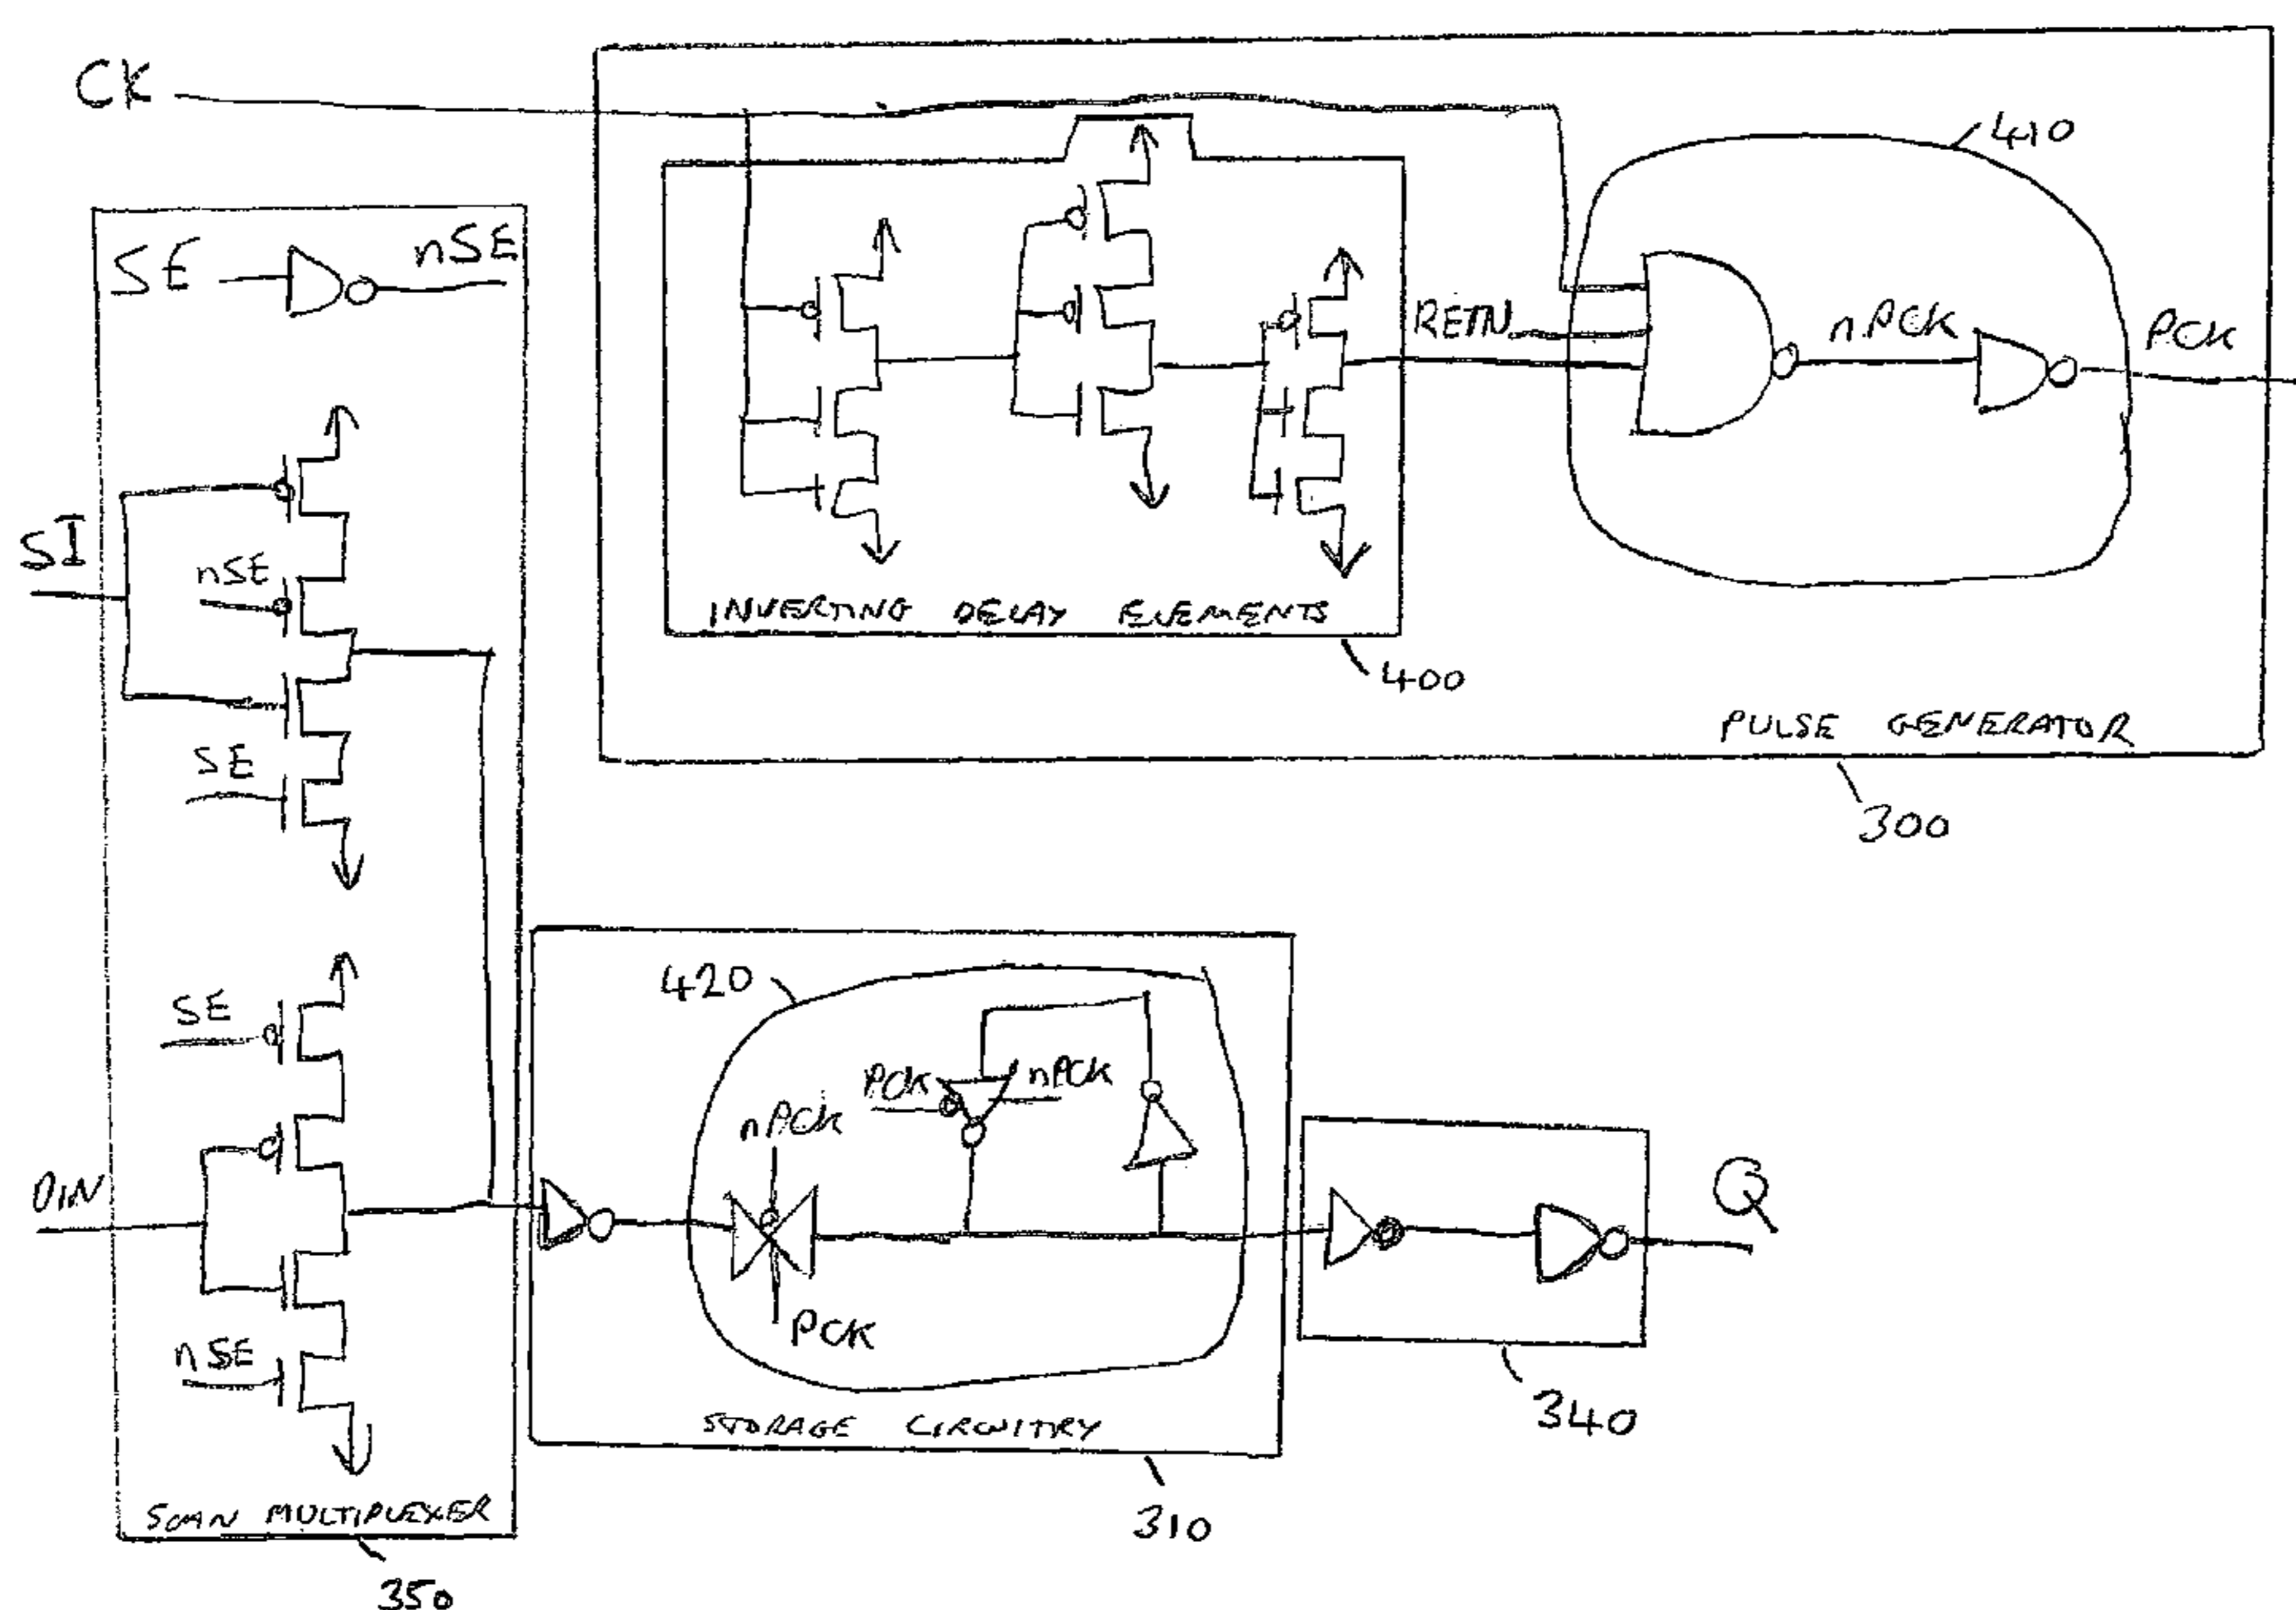 CK
410
SE
nSE
RETN
nPCK
PCK
SI
nSE
INVERTING DELAY ELEMENTS
400
PULSE GENERATOR
SE
300
420
SE
PCK
nPCK
nPCK
DIN
Q
PCK
nSE
340
STORAGE CIRCUITRY
SCAN MULTIPLEXER
310
350